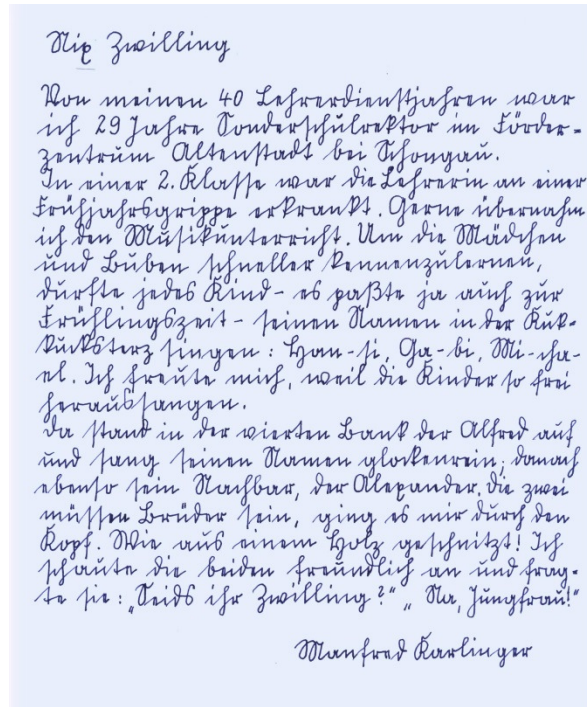 Nix Zwilling
Von meinen 40 Lehrerdienstjahren war
ich 29 Jahre Sonderschulrektor im Förder-
zentrum Altenstadt bei Schongau.
In einer 2. Klasse war die Lehrerin an einer
Frühjahrsgrippe erkrankt. Gerne übernahm
ich den Musikunterricht. Um die Mädchen
und Buben schneller kennenzulernen,
durfte jedes Kind - es paßte ja auch zur
Frühlingszeit - seinen Namen in der Kuk-
kucksterz singen: Han-si, Ga-bi, Mi-cha-
el. Ich freute mich, weil die Kinder so frei
heraussangen.
Da stand in der vierten Bank der Alfred auf
und sang seinen Namen glockenrein; danach
ebenso sein Nachbar, der Alexander. Die zwei
müssen Brüder sein, ging es mir durch den
Kopf. Wie aus einem Holz geschnitzt! Ich
schaute die beiden freundlich an und frag-
te sie: „Seids ihr Zwilling?" „Na, Jungfrau!"
Manfred Karlinger